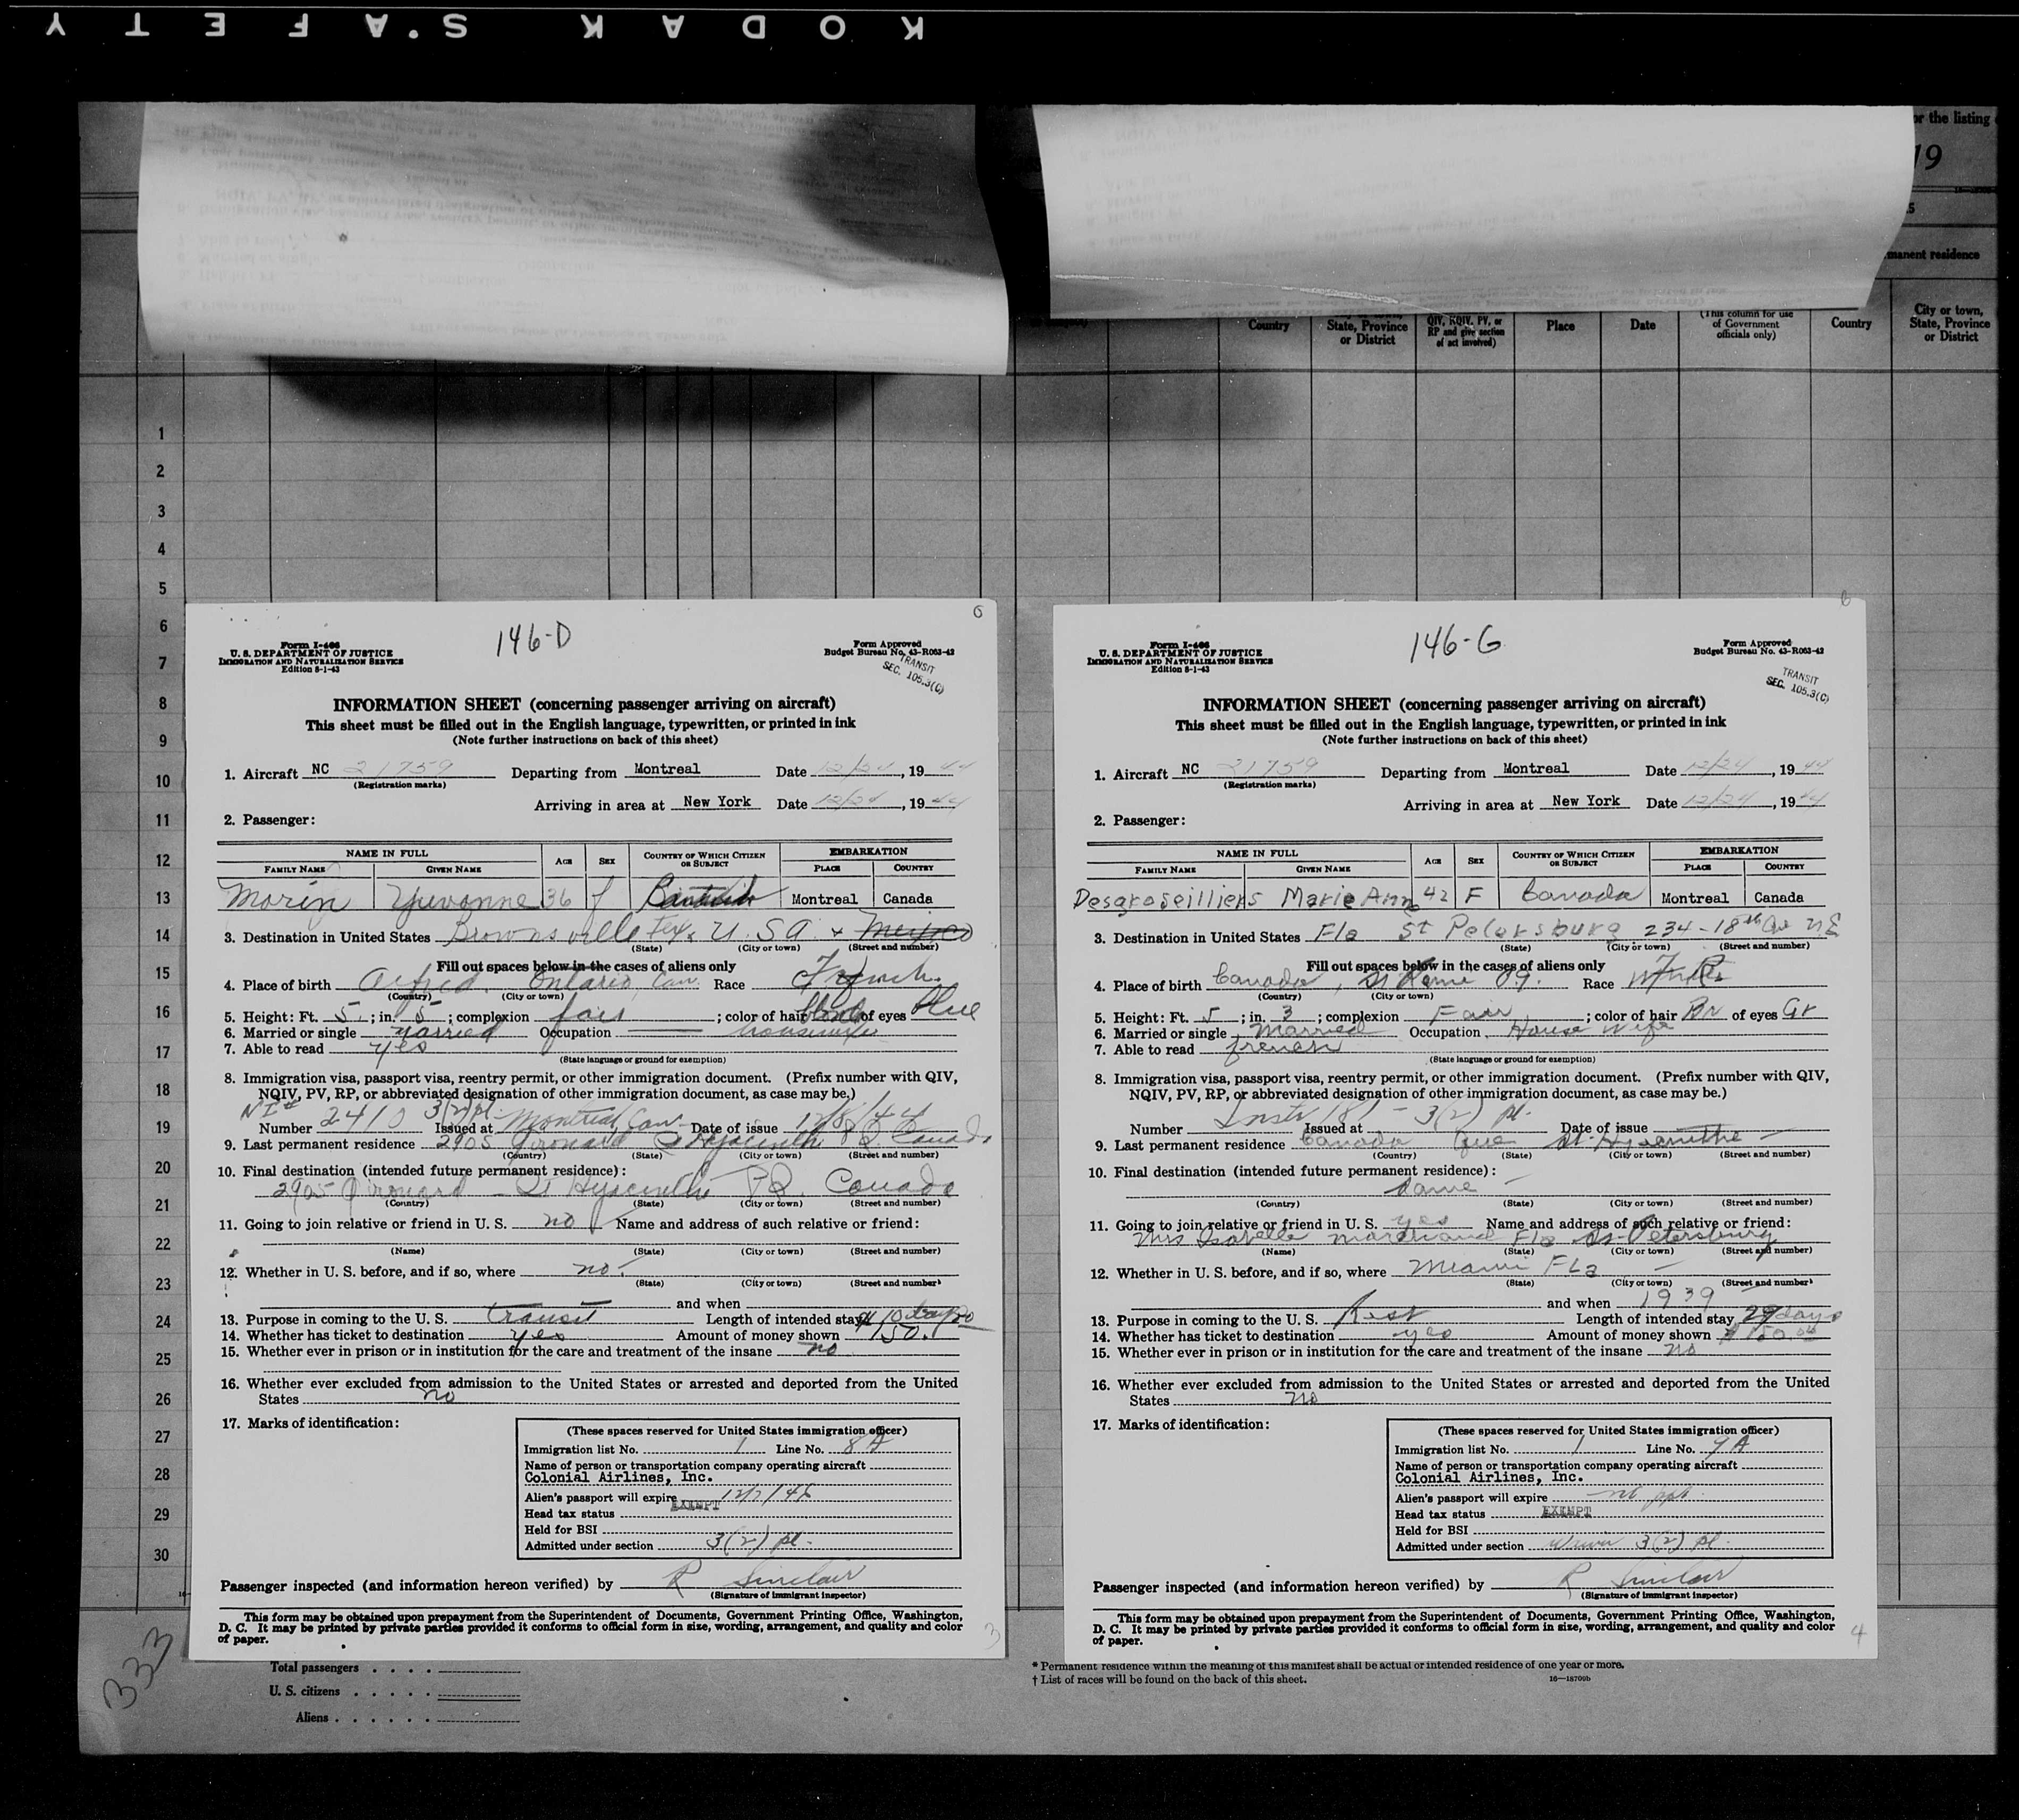 KODAK S'AFETY
or the listing
19
manent residence
Country
State, Province
or District
QIV, NQIV, PV, or
RP and give section
of act involved)
Place
Date
(This column for use
of Government
officials only)
Country
City or town,
State, Province
or District
1
2
3
4
5
6
7
8
9
10
11
12
13
14
15
16
17
18
19
20
21
22
23
24
25
26
27
28
29
30
146-D
Form I-466
U. S. DEPARTMENT OF JUSTICE
IMMIGRATION AND NATURALIZATION SERVICE
Edition 5-1-43
Form Approved
Budget Bureau No. 43-R063-42
TRANSIT
SEC. 105.3(C)
INFORMATION SHEET (concerning passenger arriving on aircraft)
This sheet must be filled out in the English language, typewritten, or printed in ink
(Note further instructions on back of this sheet)
1. Aircraft NC 21759 Departing from Montreal Date 12/24, 1944
(Registration marks)
Arriving in area at New York Date 12/24, 1944
2. Passenger:
NAME IN FULL AGE SEX COUNTRY OF WHICH CITIZEN OR SUBJECT EMBARKATION
FAMILY NAME GIVEN NAME PLACE COUNTRY
Morin Yuvonne 36 f Montreal Canada
3. Destination in United States Brownsville Tex. U.S.A. & Mexico
(State) (City or town) (Street and number)
Fill out spaces below in the cases of aliens only
4. Place of birth Alfred. Ontario, Can. Race French
(Country) (City or town)
5. Height: Ft. 5; in. 5; complexion fair; color of hair blond of eyes Blue
6. Married or single married Occupation housewife
7. Able to read yes
(State language or ground for exemption)
8. Immigration visa, passport visa, reentry permit, or other immigration document. (Prefix number with QIV,
NQIV, PV, RP, or abbreviated designation of other immigration document, as case may be.)
Number 2410 3(2) pl. Issued at Montreal, Can. Date of issue 12/8/44
9. Last permanent residence 2905 Girouard St Hyacinthe P.Q. Canada
(Country) (State) (City or town) (Street and number)
10. Final destination (intended future permanent residence):
2905 Girouard - St Hyacinthe P.Q. Canada
(Country) (State) (City or town) (Street and number)
11. Going to join relative or friend in U. S. no Name and address of such relative or friend:
(Name) (State) (City or town) (Street and number)
12. Whether in U. S. before, and if so, where no.
(State) (City or town) (Street and number)
and when
13. Purpose in coming to the U. S. transit Length of intended stay 10 days
14. Whether has ticket to destination yes Amount of money shown $150.
15. Whether ever in prison or in institution for the care and treatment of the insane no
16. Whether ever excluded from admission to the United States or arrested and deported from the United
States no
17. Marks of identification:
(These spaces reserved for United States immigration officer)
Immigration list No. 1 Line No. 8A
Name of person or transportation company operating aircraft
Colonial Airlines, Inc.
Alien's passport will expire 12/7/46
Head tax status EXEMPT
Held for BSI
Admitted under section 3(2) pl.
Passenger inspected (and information hereon verified) by R Sinclair
(Signature of immigrant inspector)
This form may be obtained upon prepayment from the Superintendent of Documents, Government Printing Office, Washington,
D. C. It may be printed by private parties provided it conforms to official form in size, wording, arrangement, and quality and color
of paper.
3
333
Total passengers
U. S. citizens
Aliens
146-G
Form I-466
U. S. DEPARTMENT OF JUSTICE
IMMIGRATION AND NATURALIZATION SERVICE
Edition 5-1-43
Form Approved
Budget Bureau No. 43-R063-42
TRANSIT
SEC. 105.3(C)
INFORMATION SHEET (concerning passenger arriving on aircraft)
This sheet must be filled out in the English language, typewritten, or printed in ink
(Note further instructions on back of this sheet)
1. Aircraft NC 21759 Departing from Montreal Date 12/24, 1944
(Registration marks)
Arriving in area at New York Date 12/24, 1944
2. Passenger:
NAME IN FULL AGE SEX COUNTRY OF WHICH CITIZEN OR SUBJECT EMBARKATION
FAMILY NAME GIVEN NAME PLACE COUNTRY
Desgroseilliers Marie Ann 42 F Canada Montreal Canada
3. Destination in United States Fla St Petersburg 234-18th Ave NE
(State) (City or town) (Street and number)
Fill out spaces below in the cases of aliens only
4. Place of birth Canada, Race
(Country) (City or town)
5. Height: Ft. 5; in. 3; complexion Fair; color of hair Br of eyes Gr
6. Married or single Married Occupation House wife
7. Able to read french
(State language or ground for exemption)
8. Immigration visa, passport visa, reentry permit, or other immigration document. (Prefix number with QIV,
NQIV, PV, RP, or abbreviated designation of other immigration document, as case may be.)
Instr 181 - 3(2) pl.
Number Issued at Date of issue
9. Last permanent residence Canada Que St-Hyacinthe
(Country) (State) (City or town) (Street and number)
10. Final destination (intended future permanent residence):
Same
(Country) (State) (City or town) (Street and number)
11. Going to join relative or friend in U. S. yes Name and address of such relative or friend:
Mrs Isabelle Marchand Fla St-Petersburg
(Name) (State) (City or town) (Street and number)
12. Whether in U. S. before, and if so, where Miami FLa
(State) (City or town) (Street and number)
and when 1939
13. Purpose in coming to the U. S. Rest Length of intended stay 29 days
14. Whether has ticket to destination yes Amount of money shown $150.00
15. Whether ever in prison or in institution for the care and treatment of the insane no
16. Whether ever excluded from admission to the United States or arrested and deported from the United
States no
17. Marks of identification:
(These spaces reserved for United States immigration officer)
Immigration list No. 1 Line No. 7A
Name of person or transportation company operating aircraft
Colonial Airlines, Inc.
Alien's passport will expire no ppt.
Head tax status EXEMPT
Held for BSI
Admitted under section 3(2) pl.
Passenger inspected (and information hereon verified) by R Sinclair
(Signature of immigrant inspector)
This form may be obtained upon prepayment from the Superintendent of Documents, Government Printing Office, Washington,
D. C. It may be printed by private parties provided it conforms to official form in size, wording, arrangement, and quality and color
of paper.
4
* Permanent residence within the meaning of this manifest shall be actual or intended residence of one year or more.
† List of races will be found on the back of this sheet.
16—18709b